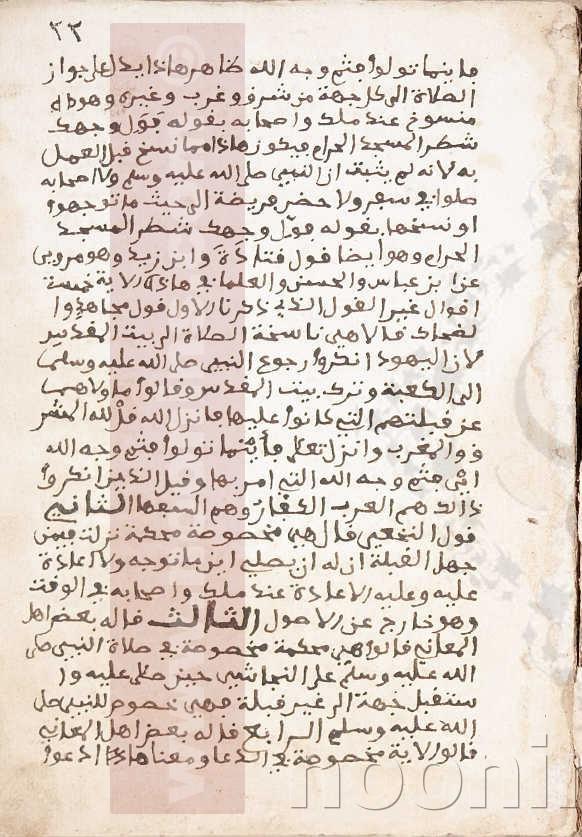 ٣٢
فاينما تولوا فثم وجه الله ظاهر هاذا يدل على جواز
الصلاة الى كل جهة من شرق وغرب وغيره وهو
منسوخ عند ملك واصحابه بقوله فول وجهك
شطر المسجد الحرام فيكون هاذا مما نسخ قبل العمل
به لانه لم يثبت ان النبيي صلى الله عليه وسلم ولا اصحابه
صلوا في سفر ولا حضر فريضة الى حيث ما توجهوا
او نسخها بقوله فول وجهك شطر المسجد
الحرام وهو ايضا قول فتادة وابن زيد وهو مروي
عن ابن عباس والحسن وللعلما في هاذه الاية خمسة
اقوال غير القول الذي ذكرنا الاول قول مجاهد وا
لضحاك قالا هي ناسخة الصلاة الى بيت المقدس
لان اليهود انكروا رجوع النبيي صلى الله عليه وسلم
الى الكعبة وترك بيت المقدس وقالوا ما ولاهم
عن قبلتهم التي كانوا عليها فانزل الله قل لله المشر
ق والمغرب وانزل تعلى فأينما تولوا فثم وجه الله
اي فثم وجه الله التي امر بها وقيل الذين انكروا
ذالك هم العرب الكفار وهم السفها الثاني
قول النخعي قال هي مخصوصة محكمة نزلت فيمن
جهل القبلة ان له ان يصلي اين ما توجه ولا اعادة
عليه وعليه الاعادة عند ملك واصحابه في الوقت
وهو خارج عن الاصول الثالث قاله بعض اهل
المعاني قالوا هي محكمة مخصوصة في صلاة النبيي صلى
الله عليه وسلم على النجاشي حين صلى عليه وا
ستقبل جهة الى غير قبلة فهي خصوص للنبيي صلى
الله عليه وسلم الرابع قاله بعض اهل المعاني
قالوا الاية مخصوصة في الدعا ومعنا هاذا ادعوا
nooni